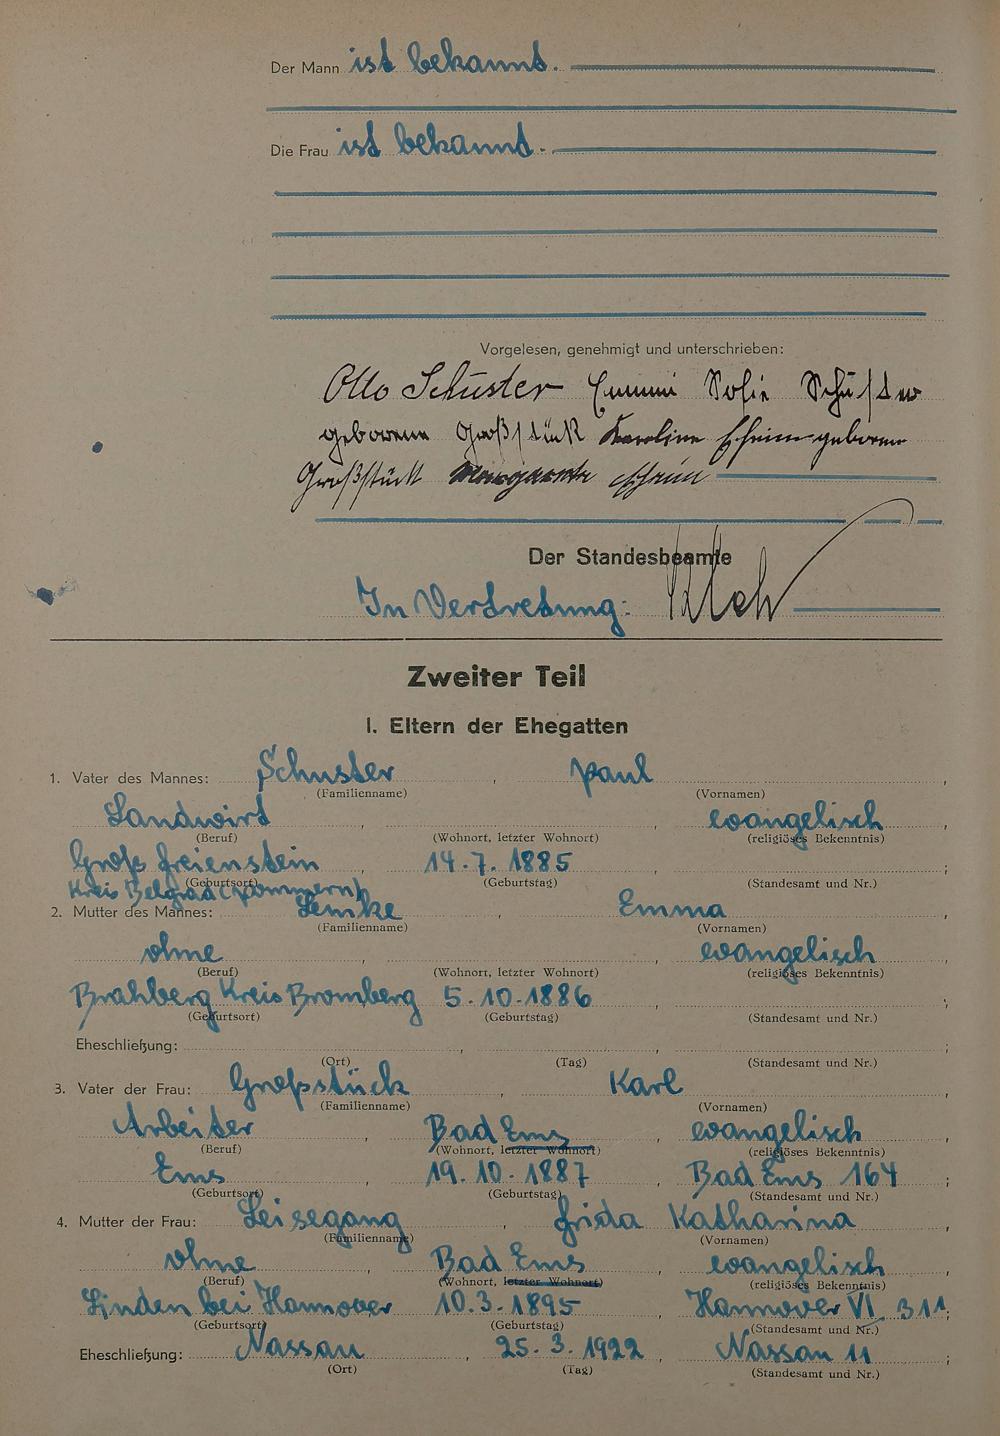 Der Mann ist bekannt.
Die Frau ist bekannt.
Vorgelesen, genehmigt und unterschrieben:
Otto Schuster Emmi Sofie Schuster
geborene Großstück Karoline geborene
Großstück Margarete
Der Standesbeamte
In Vertretung:
Zweiter Teil
I. Eltern der Ehegatten
1. Vater des Mannes: Schuster, Paul,
(Familienname) (Vornamen)
Landwirt, , evangelisch,
(Beruf) (Wohnort, letzter Wohnort) (religiöses Bekenntnis)
Groß Freienstein 14.7.1885
(Geburtsort) (Geburtstag) (Standesamt und Nr.)
Kreis Belgrad (Pommern)
2. Mutter des Mannes: Lemke, Emma,
(Familienname) (Vornamen)
ohne, , evangelisch,
(Beruf) (Wohnort, letzter Wohnort) (religiöses Bekenntnis)
Brahberg Kreis Bromberg 5.10.1886, ;
(Geburtsort) (Geburtstag) (Standesamt und Nr.)
Eheschließung: , , ;
(Ort) (Tag) (Standesamt und Nr.)
3. Vater der Frau: Großstück, Karl,
(Familienname) (Vornamen)
Arbeiter, Bad Ems, evangelisch,
(Beruf) (Wohnort, letzter Wohnort) (religiöses Bekenntnis)
Ems, 19.10.1887, Bad Ems 164;
(Geburtsort) (Geburtstag) (Standesamt und Nr.)
4. Mutter der Frau: Leisegang, Frida Katharina,
(Familienname) (Vornamen)
ohne, Bad Ems, evangelisch,
(Beruf) (Wohnort, letzter Wohnort) (religiöses Bekenntnis)
Linden bei Hannover 10.3.1895, Hannover VI 311;
(Geburtsort) (Geburtstag) (Standesamt und Nr.)
Eheschließung: Nassau, 25.3.1922, Nassau 11;
(Ort) (Tag) (Standesamt und Nr.)